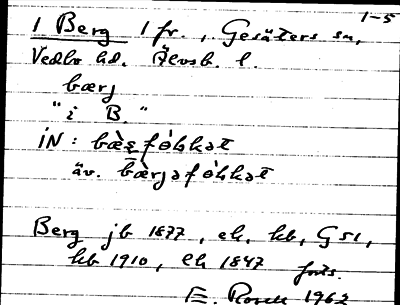 1-5
1 Berg 1 fr., Gesäters sn,
Vedbo hd. Älvsb. l.
bærj
"i B."
iN: bæ̀ȩfò̵hkət
äv. bæ̀rjəfò̵hkət
Berg jb 1877, ek, hb, GS1,
hb 1910, ek 1847 forts.
E. Rosell 1962